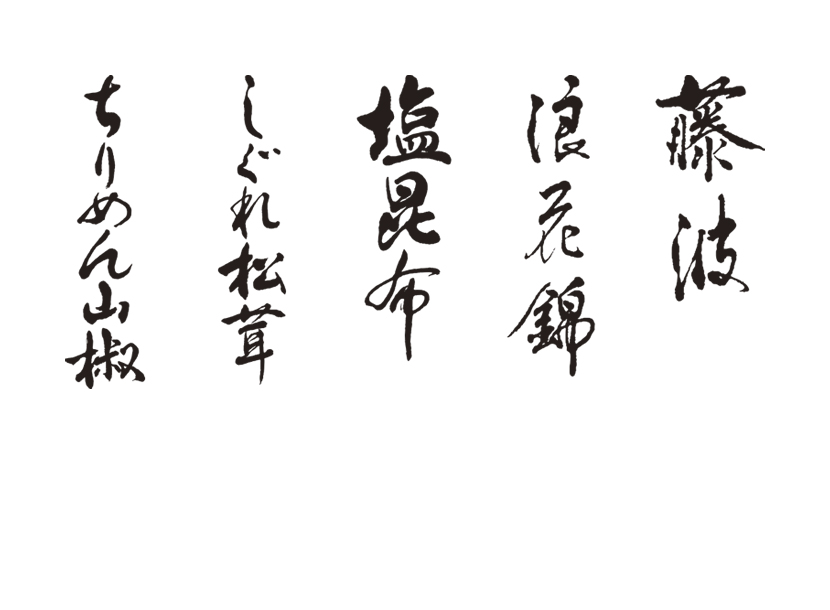 藤波
浪花錦
塩昆布
しぐれ松茸
ちりめん山椒